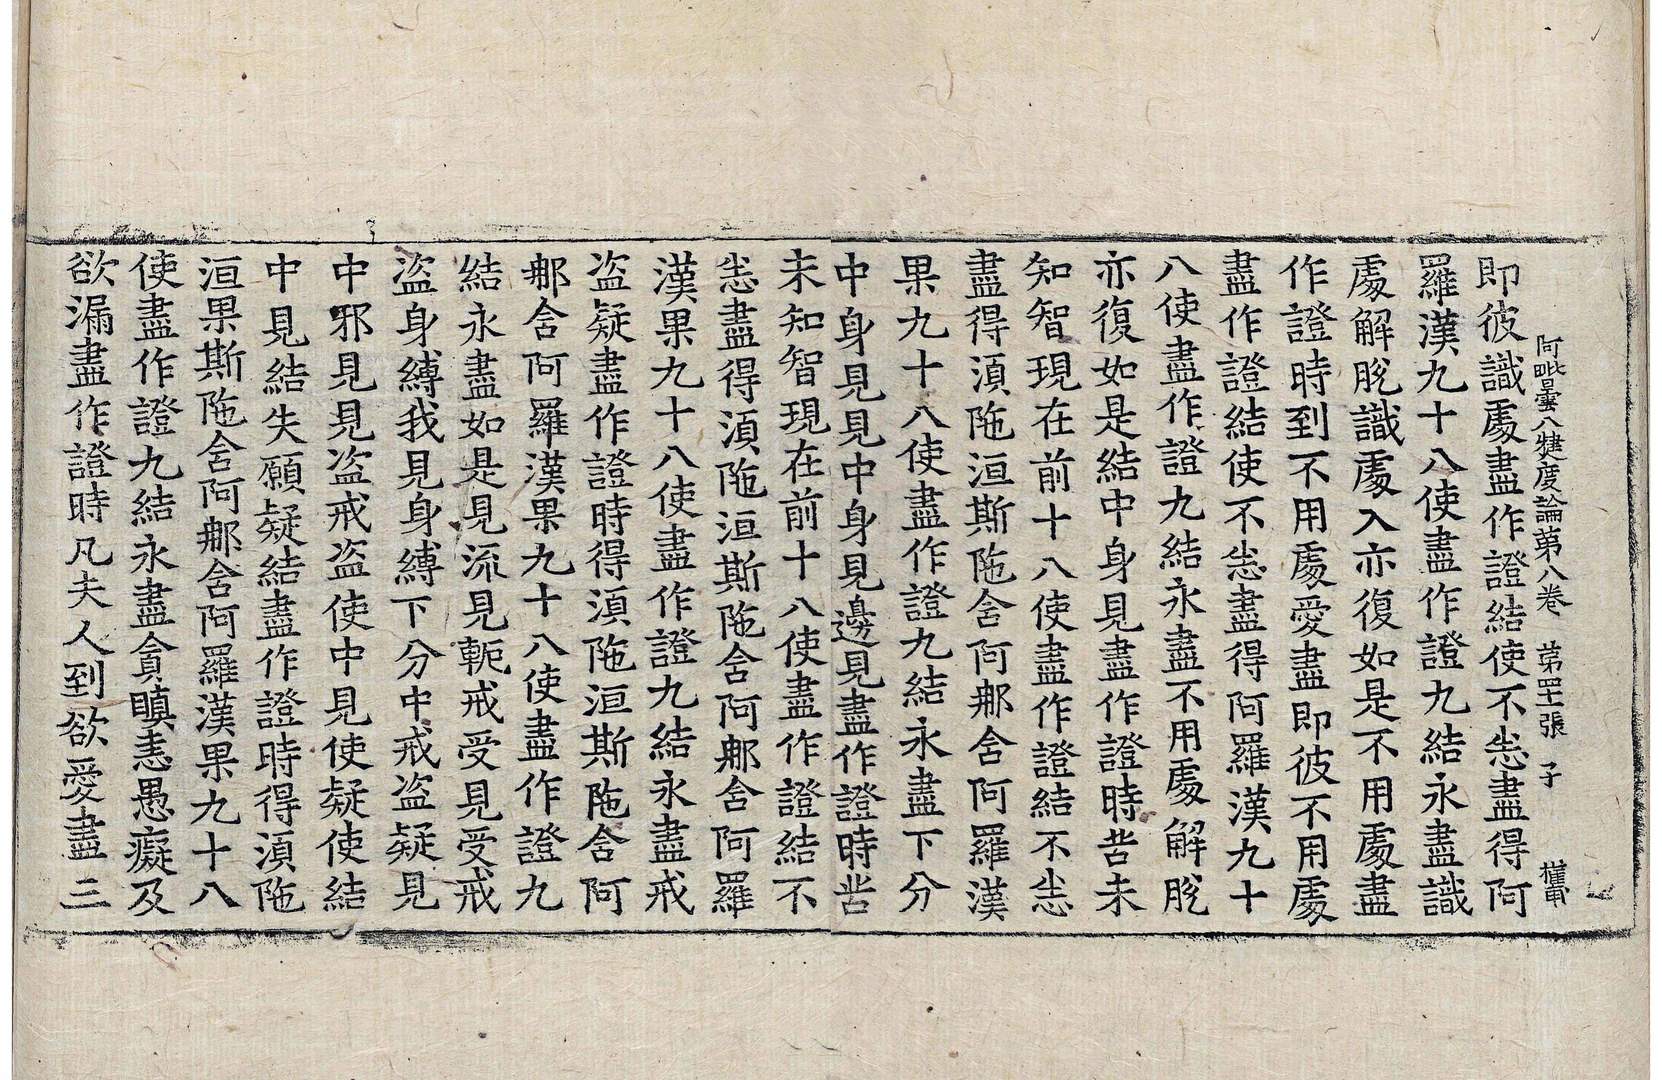 阿毗曇八犍度論第八卷 第四十一張 子
即彼識處盡作證結使不悉盡得阿
羅漢九十八使盡作證九結永盡識
處解脫識處入亦復如是不用處盡
作證時到不用處愛盡即彼不用處
盡作證結使不悉盡得阿羅漢九十
八使盡作證九結永盡不用處解脫
亦復如是結中身見盡作證時苦未
知智現在前十八使盡作證結不悉
盡得須陁洹斯陁含阿那含阿羅漢
果九十八使盡作證九結永盡下分
中身見見中身見邊見盡作證時苦
未知智現在前十八使盡作證結不
悉盡得須陁洹斯陁含阿那含阿羅
漢果九十八使盡作證九結永盡戒
盜疑盡作證時得須陁洹斯陁含阿
那含阿羅漢果九十八使盡作證九
結永盡如是見流見軛戒受見受戒
盜身縛我見身縛下分中戒盜疑見
中邪見見盜戒盜使中見使疑使結
中見結失願疑結盡作證時得須陁
洹果斯陁含阿那含阿羅漢果九十八
使盡作證九結永盡貪瞋恚愚癡及
欲漏盡作證時凡夫人到欲愛盡三